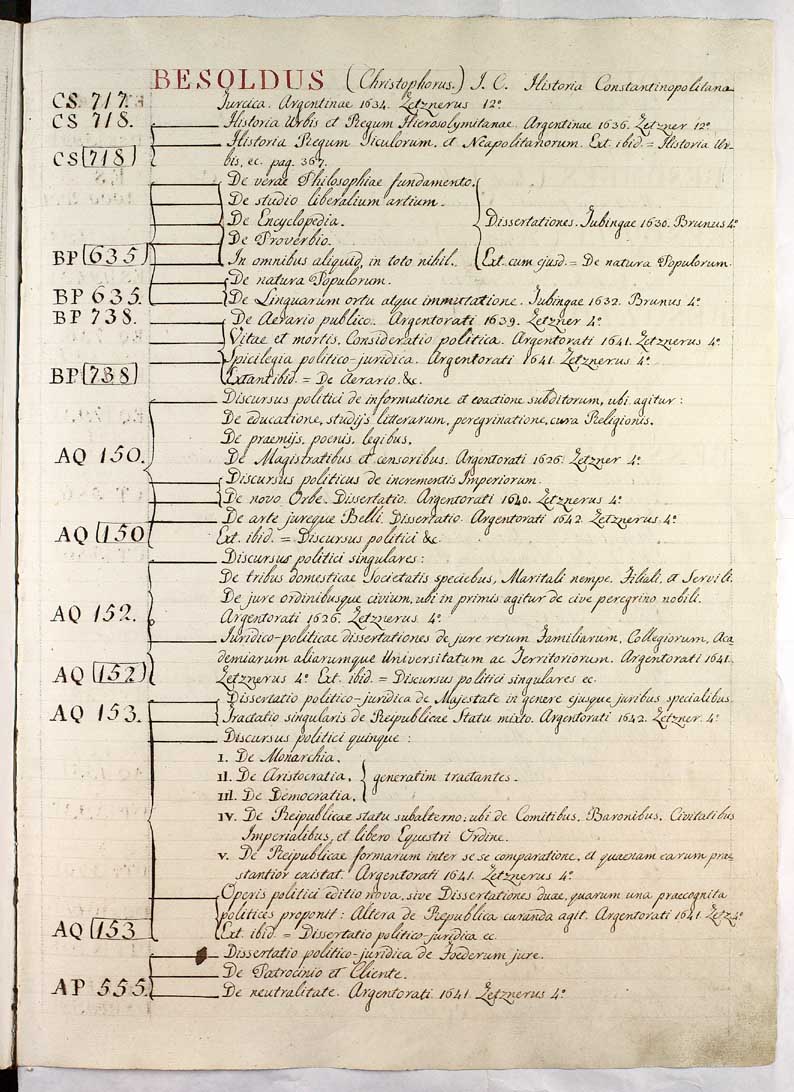 BESOLDUS (Christophorus.) I. C. Historia Constantinopolitana
CS. 717. Turcica. Argentinae 1634. Zetznerus 12º
CS 718. Historia Urbis et Regum Hierosolymitanae. Argentinae 1636. Zetzner 12º
Historia Regum Siculorum, et Neapolitanorum. Ext. ibid. = Historia Ur-
CS 718 bis, ec. pag. 367.
De verae Philosophiae fundamento.
De studio liberalium artium.
De Encyclopedia. Dissertationes. Tubingae 1630. Brunus 4º
De Proverbio.
BP 635 In omnibus aliquid, in toto nihil. Ext. cum ejusd. = De natura Populorum.
De natura Populorum.
BP 635. De Linguarum ortu atque immutatione. Tubingae 1632. Brunus 4º
BP 738. De Aerario publico. Argentorati 1639. Zetzner 4º
Vitae et mortis, Consideratio politica. Argentorati 1641. Zetznerus 4º
Spicilegia politico-juridica. Argentorati 1641. Zetznerus 4º
BP 738 Extant ibid. = De Aerario. &c.
Discursus politici de informatione et coactione subditorum, ubi agitur:
De educatione, studijs litterarum, peregrinatione, cura Religionis.
De praemijs, poenis, legibus.
AQ 150. De Magistratibus et censoribus. Argentorati 1626. Zetzner 4º
Discursus politicus de incrementis Imperiorum.
De novo Orbe. Dissertatio. Argentorati 1640. Zetznerus 4º
De arte jureque Belli. Dissertatio. Argentorati 1642. Zetznerus 4º
AQ 150 Ext. ibid. = Discursus politici &c.
Discursus politici singulares:
De tribus domesticae Societatis speciebus, Maritali nempe, Filiali, et Servili.
De jure ordinibusque civium, ubi in primis agitur de cive peregrino nobili.
AQ 152. Argentorati 1626. Zetznerus 4º
Juridico-politicae dissertationes de jure rerum Familiarum, Collegiorum, Aca-
demiarum aliarumque Universitatum ac Territoriorum. Argentorati 1641.
AQ 152 Zetznerus 4º Ext. ibid. = Discursus politici singulares ec.
Dissertatio politico-juridica de Majestate in genere ejusque juribus specialibus.
AQ 153. Tractatio singularis de Reipublicae Statu mixto. Argentorati 1642. Zetzner. 4º
Discursus politici quinque:
I. De Monarchia.
II. De Aristocratia. generatim tractantes.
III. De Democratia.
IV. De Reipublicae statu subalterno: ubi de Comitibus. Baronibus. Civitatibus
Imperialibus, et libero Equestri Ordine.
V. De Reipublicae formarum inter se se comparatione, et quaenam earum prae-
stantior existat. Argentorati 1641. Zetznerus 4º
Operis politici editio nova, sive Dissertationes duae, quarum una praecognita
politices proponit: Altera de Republica curanda agit. Argentorati 1641. Zetz. 4º
AQ 153 Ext. ibid. = Dissertatio politico-juridica ec.
Dissertatio politico-juridica de Foederum jure.
De Patrocinio et Cliente.
AP 555. De neutralitate. Argentorati 1641. Zetznerus 4º